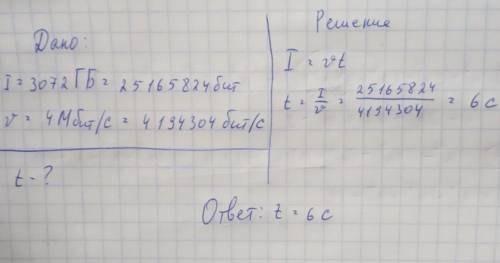 Дано:
I = 3072 ГБ = 25165824 бит
v = 4 Мбит/с = 4194304 бит/с
t - ?
Решение
I = vt
t = I/v = 25165824/4194304 = 6 с
Ответ: t = 6 с